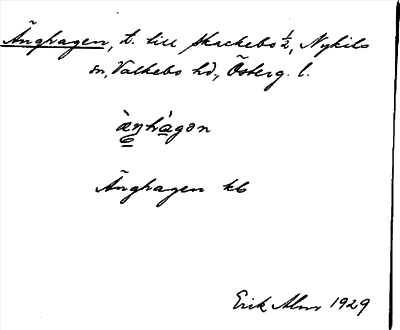 Änghagen, t. till Skackebo ½, Nykils
sn, Valkebo hd, Österg. l.
ànhàgən
Änghagen kb
Erik Alm 1929